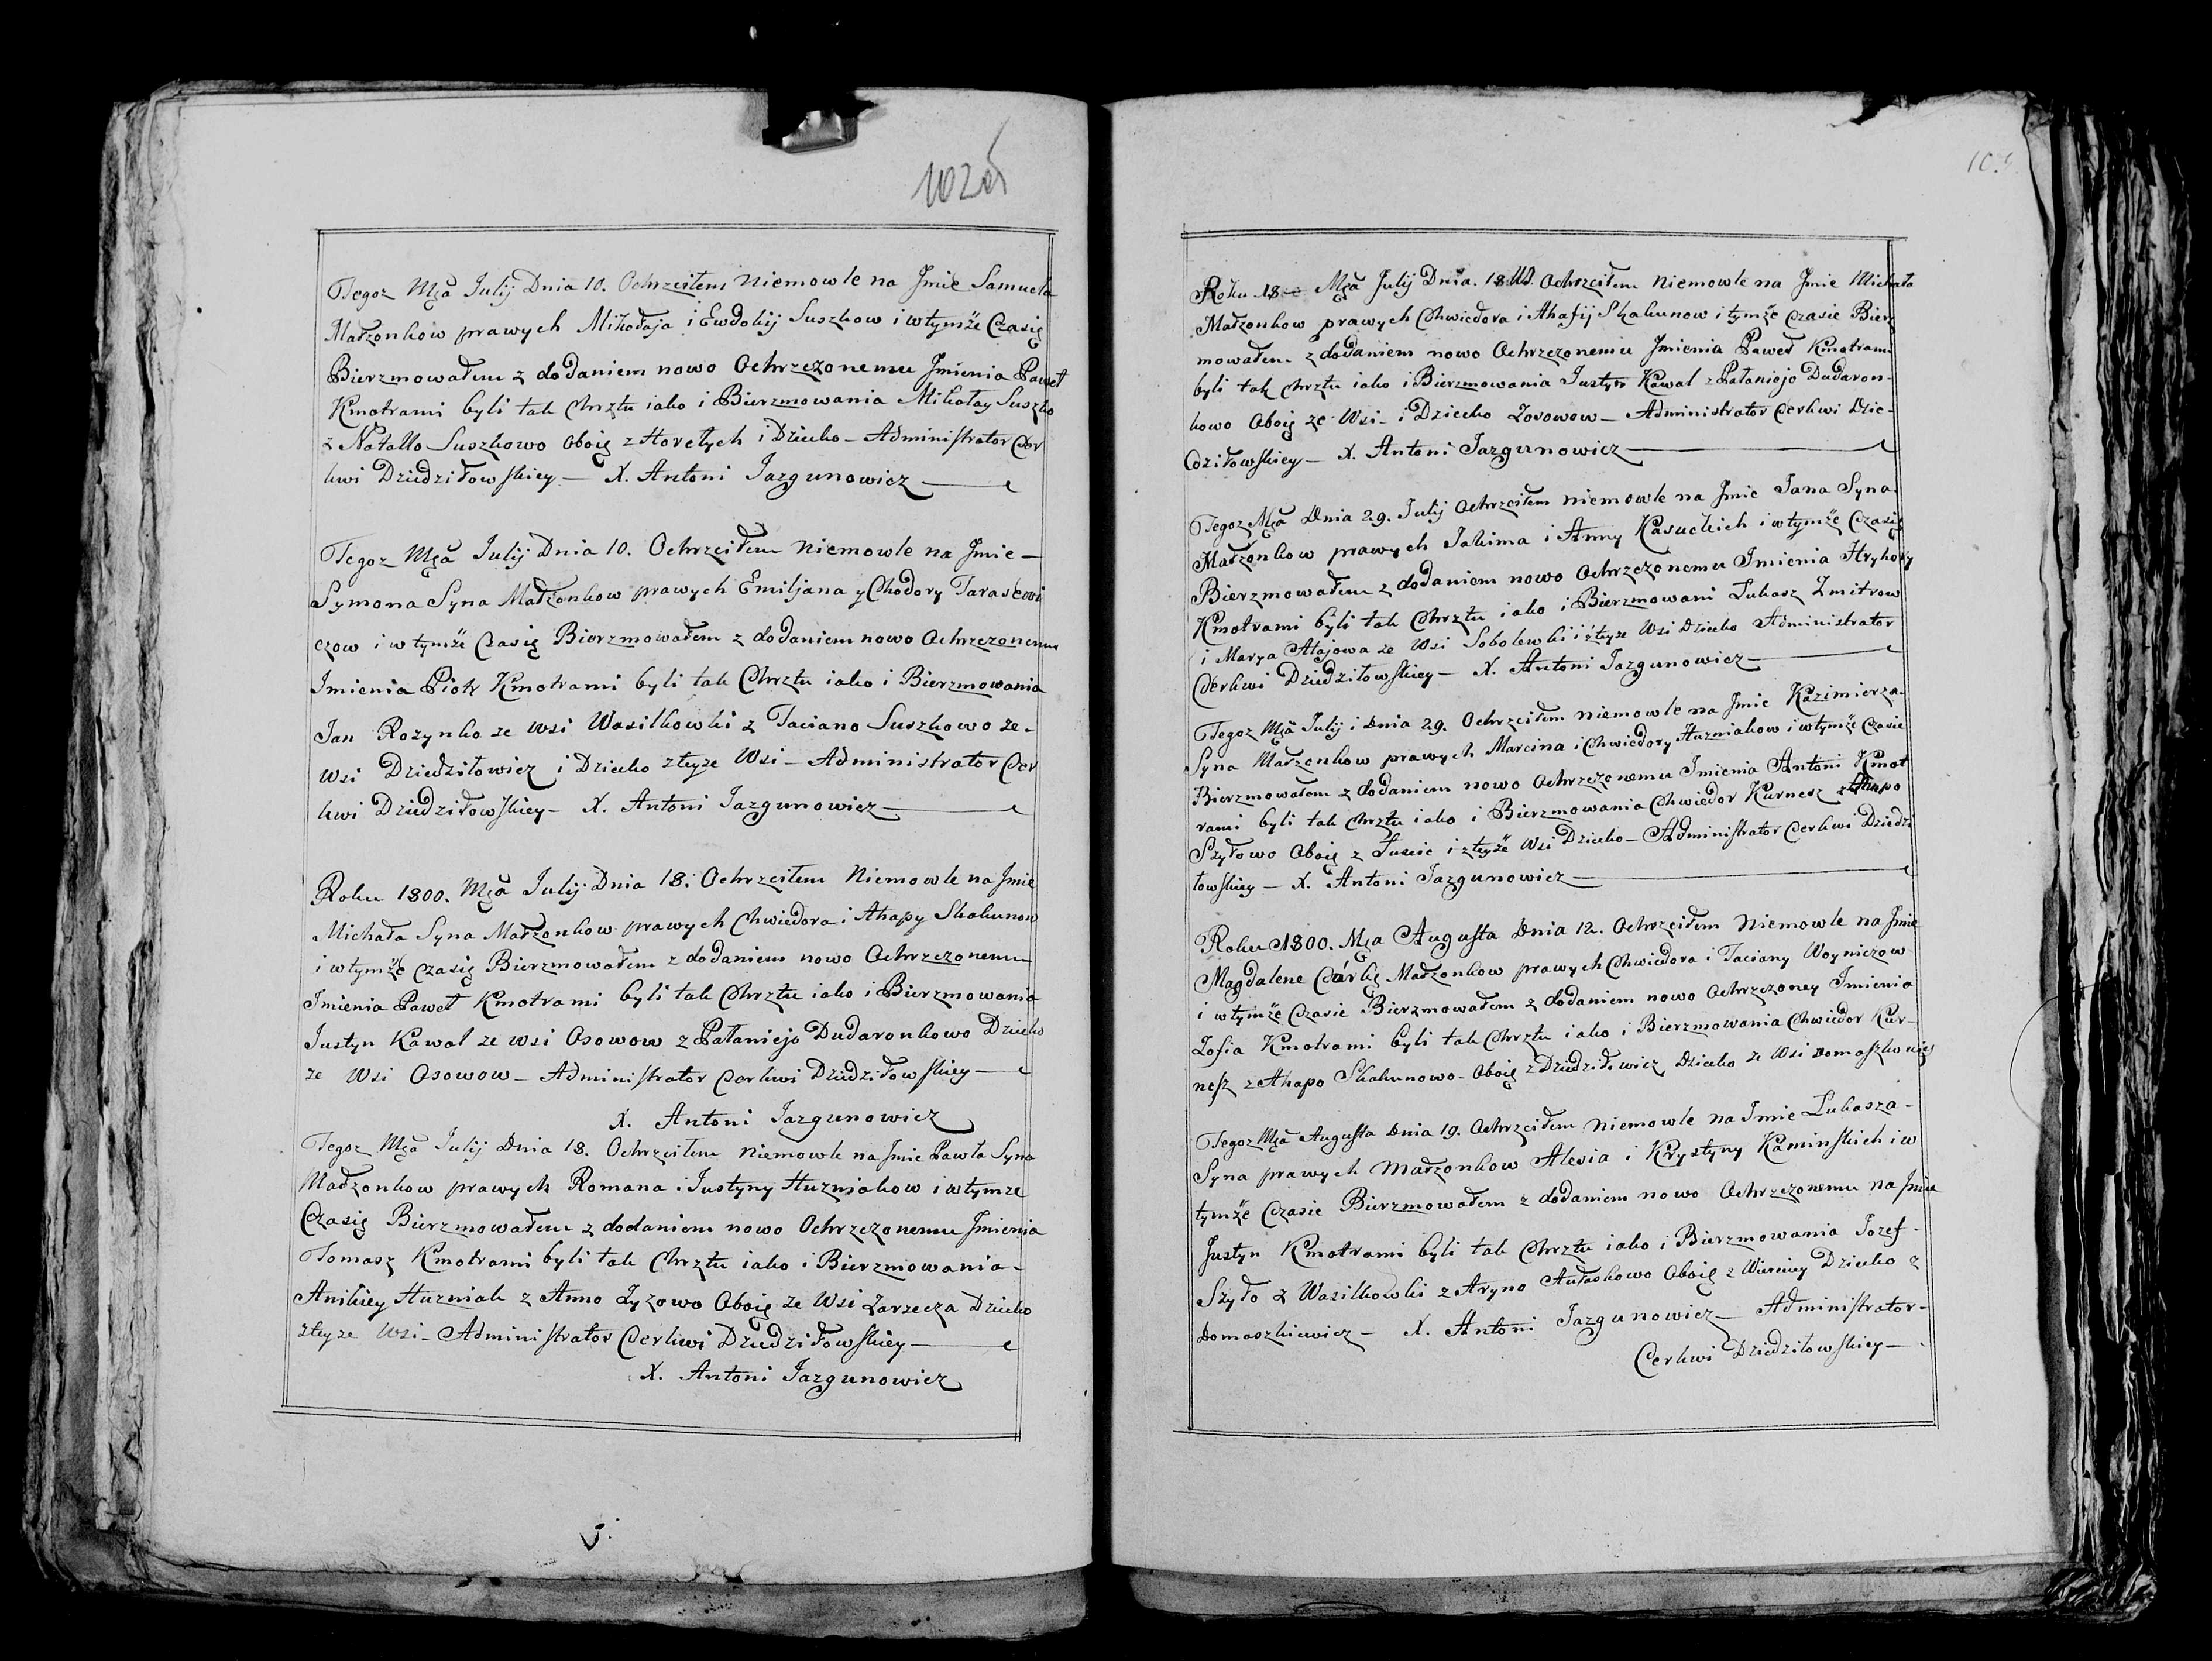 102 об
Tegoż Mca Julij Dnia 10. Ochrzciłem Niemowle na Jmie Samuela
Małżonkow prawych Mikołaja i Ewdokij Suszkow i wtymże Czasię
Bierzmowałem z dodaniem nowo Ochrzczonemu Jmienia Paweł
Kmotrami byli tak Chrztu iako i Bierzmowania Mikołay Suszko
z Natallo Suszkowo Oboię z Horełych i Dziecko – Administrator Cer
kwi Dziedziłowskiey – X. Antoni Jazgunowicz
Tegoz Mca Julij Dnia 10. Ochrzciłem Niemowle na Jmie –
Symona Syna Małżonkow prawych Emiljana y Chodory Tarasewi
czow i w tymże Czasię Bierzmowałem z dodaniem nowo Ochrzczonemu
Imienia Piotr Kmotrami byli tak Chrztu iako i Bierzmowania
Jan Rozynko ze wsi Wasilkowki z Taciano Suszkowo ze –
wsi Dziedziłowicz i Dziecko zteyze Wsi – Administrator Cer
kwi Dziedziłowskiey – X. Antoni Jazgunowicz
Roku 1800. Mca Julij Dnia 18. Ochrzciłem Niemowle na Jmie
Michała Syna Małżonkow prawych Chwiedora i Ahapy Skakunow
i wtymże czasię Bierzmowałem z dodaniem nowo Ochrzczonemu
Imienia Paweł Kmotrami byli tak Chrztu iako i Bierzmowania
Justyn Kawal ze wsi Osowow z Pałaniejo Dudaronkowo Dziecko
ze Wsi Osowow – Administrator Cerkwi Dziedziłowskiey –
X. Antoni Jazgunowicz
Tegoz Mca Julij Dnia 18. Ochrzciłem Niemowle na Jmie Pawła Syna
Małżonkow prawych Romana i Justyny Huzniakow i wtymze
Czasię Bierzmowałem z dodaniem nowo Ochrzczonemu Jmienia
Tomasz Kmotrami byli tak Chrztu iako i Bierzmowania –
Anikiey Huzniak z Anno Zyzowo Oboię ze Wsi Zarzecza Dziecko
zteyze Wsi – Administrator Cerkwi Dziedziłowskiey –
X. Antoni Jazgunowicz
Roku 18 Mca Julij Dnia. 18 Ochrzciłem Niemowle na Jmie Michała
Małzonkow prawych Chwiedora i Ahafij Skakunow i tymże czasie Bierz
mowałem z dodaniem nowo Ochrzczonemu Jmienia Paweł Kmotrami
byli tak chrztu iako i Bierzmowania Justyn Kawal z Pałaniejo Dudaron-
kowo Oboię ze Wsi – i Dziecko Zosowow – Administrator Cerkwi Dzie-
dziłowskiey – X. Antoni Jazgunowicz
Tegoz Mca Dnia 29. Julij Ochrzciłem niemowle na Jmie Jana Syna
Małżonkow prawych Jakima i Anny Kasuckich i wtymże Czasię
Bierzmowałem z dodaniem nowo Ochrzczonemu Imienia Hryhory
Kmotrami byli tak Chrztu iako i Bierzmowani Łukasz Zmitrow
i Marya Atajowa ze Wsi Sobolewki i zteyze Wsi Dziecko Administrator
Cerkwi Dziedziłowskiey – X. Antoni Jazgunowicz
Tegoz Mca Julij i Dnia 29. Ochrzciłem niemowle na Jmie Kazimierza
Syna Małżonkow prawych Marcina i Chwiedory Huzniakow i wtymże Czasie
Bierzmowałem z dodaniem nowo Ochrzczonemu Imienia Antoni Kmot
rami byli tak Chrztu iako i Bierzmowania Chwiedor Kurnesz z Ahapo
Szyłowo Oboię z Łuscic i zteyże Wsi Dziecko – Administrator Cerkwi Dziedzi
łowskiey – X. Antoni Jazgunowicz
Roku 1800. Mca Augusta Dnia 12. Ochrzciłem Niemowle na Jmie
Magdalene Córkę Małżonkow prawych Chwiedora i Taciany Woyniczow
i wtymże Czasie Bierzmowałem z dodaniem nowo Ochrzczoney Imienia
Zofia Kmotrami byli tak Chrztu iako i Bierzmowania Chwiedor Kur-
nesz z Ahapo Skakunowo – Oboię z Dziedziłowicz, Dziecko ze Wsi
Tegoz Mca Augusta Dnia 19. Ochrzciłem Niemowle na Imie Łukasza –
Syna prawych Małżonkow Alesia i Krystyny Kaminskich i w
tymże Czasie Bierzmowałem z dodaniem nowo Ochrzczonemu na Jmie
Justyn Kmotrami byli tak Chrztu iako i Bierzmowania Jozef –
Szyło z Wasilkowki z Aryno Aułaskowo Oboię z Dziecko z
Domaszkiewicz – X. Antoni Jazgunowicz – Administrator –
Cerkwi Dziedziłowskiey –